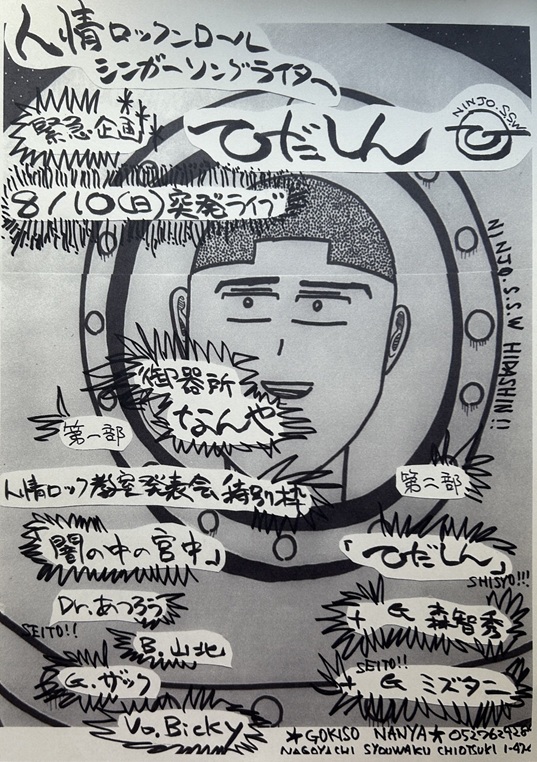 人情ロックンロール
シンガーソングライター
緊急企画!
ひだしん
NINJO.SSW
8/10(日)突発ライブ
NINJO.S.S.W HIDASHIN!!
御器所
なんや
第一部
人情ロック教室発表会特別枠
「闇の中の宮中」
Dr.あつろう
SEITO!!
B.山北
G.ザック
Vo.Bicky
第二部
「ひだしん」
SHISYO!!!
+ G 森智秀
SEITO!!
+ G ミズタニ
★GOKISO NANYA★
NAGOYACHI SYOUWAKU CHIOTSUKI